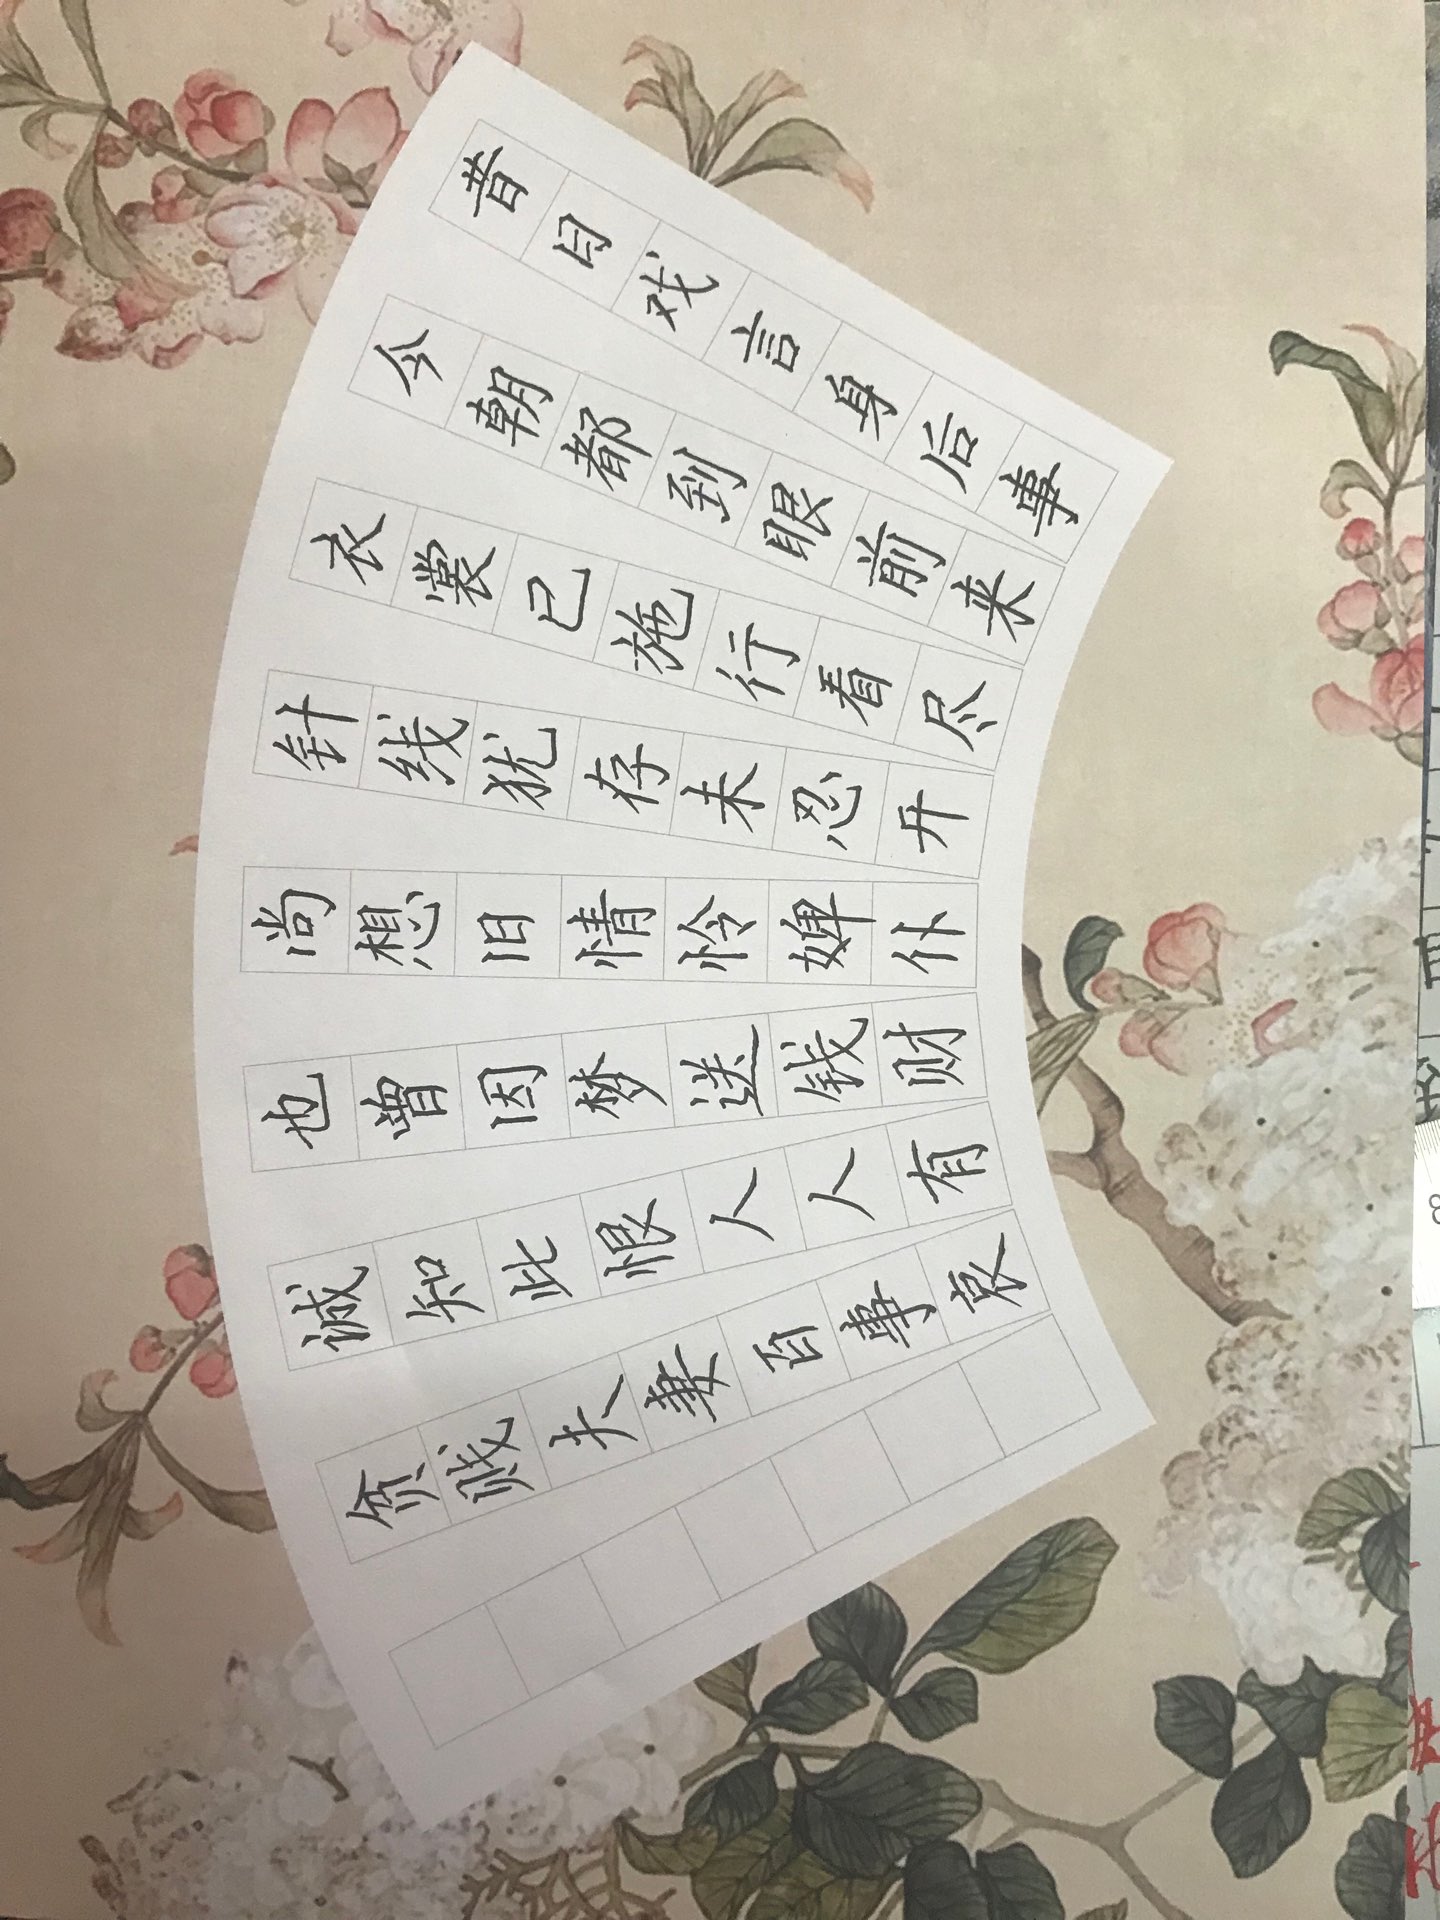 昔日戏言身后事
今朝都到眼前来
衣裳已施行看尽
针线犹存未忍开
尚想旧情怜婢仆
也曾因梦送钱财
诚知此恨人人有
贫贱夫妻百事哀
8